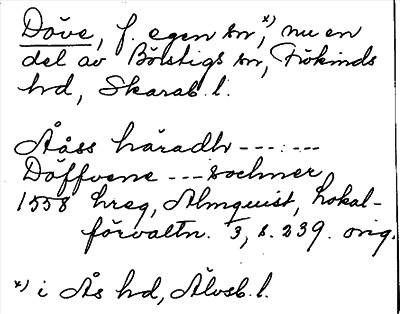 Döve, f. egen sn,*) nu en
del av Bölstigs sn, Frökinds
hd, Skarab. l.
Åäss häradh ---:---
Döffvene --- sochner
1558 hreg, Almquist, Lokal-
förvaltn. 3, s. 239. orig.
*) i Ås hd, Älvsb. l.